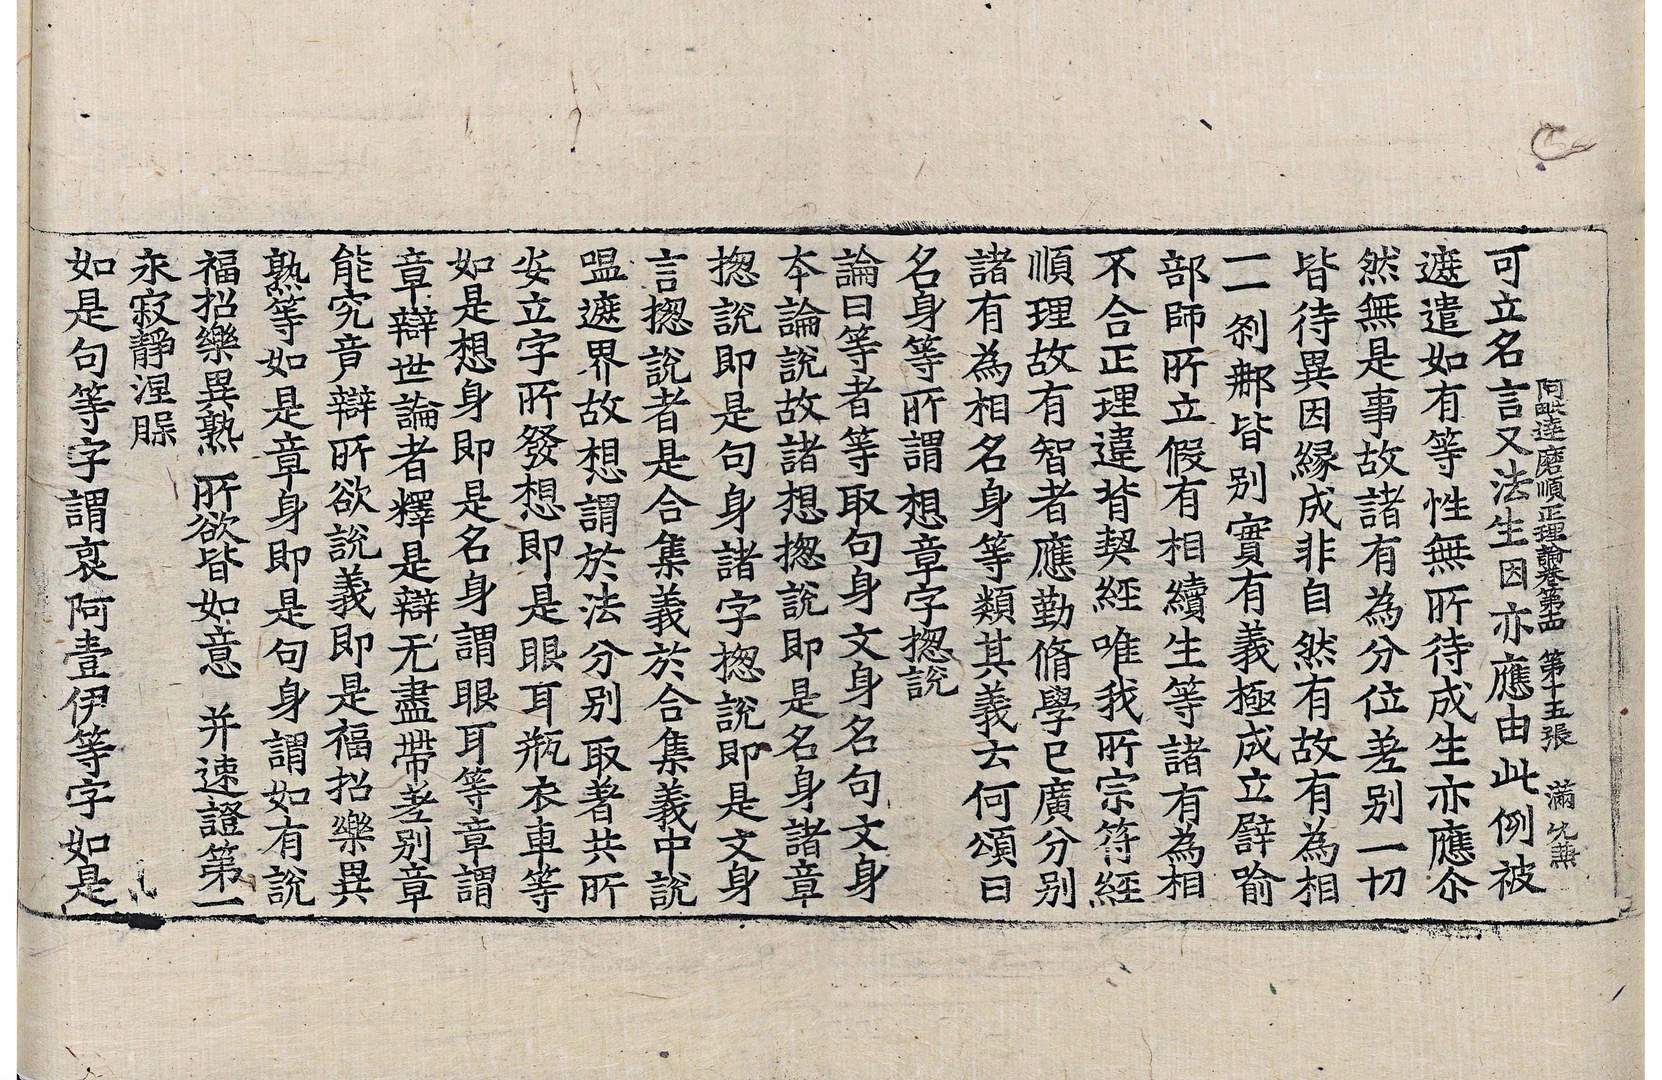 阿毗達磨順正理論卷第十四 第十五張 滿
可立名言又法生因亦應由此例被
遮遣如有等性無所待成生亦應尒
然無是事故諸有為分位差别一切
皆待異因縁成非自然有故有為相
一一刹那皆别實有義極成立譬喻
部師所立假有相續生等諸有為相
不合正理違背契經唯我所宗符經
順理故有智者應勤脩學已廣分别
諸有為相名身等類其義云何頌曰
名身等所謂 想章字揔說
論曰等者等取句身文身名句文身
本論說故諸想揔說即是名身諸章
揔說即是句身諸字揔說即是文身
言揔說者是合集義於合集義中說
嗢遮界故想謂於法分别取著共所
安立字所發想即是眼耳瓶衣車等
如是想身即是名身謂眼耳等章謂
章辯世論者釋是辯无盡帶差别章
能究竟辯所欲說義即是福招樂異
熟等如是章身即是句身謂如有說
福招樂異熟 所欲皆如意 并速證第一
永寂靜涅槃
如是句等字謂裒阿壹伊等字如是